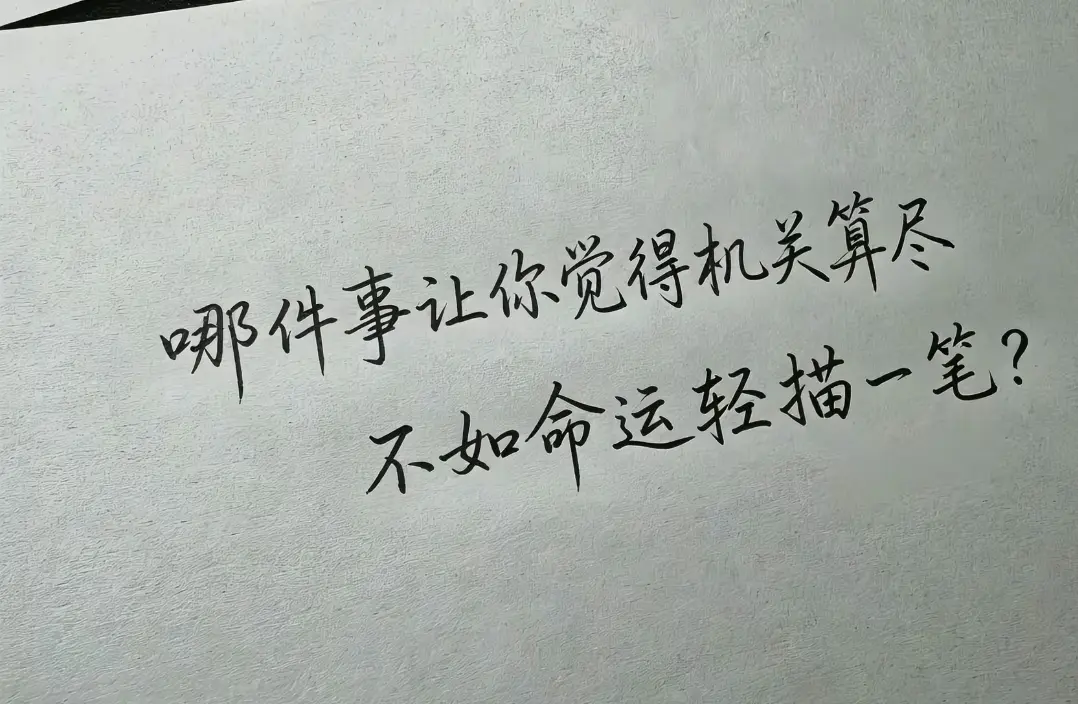 哪件事让你觉得机关算尽
不如命运轻描一笔?